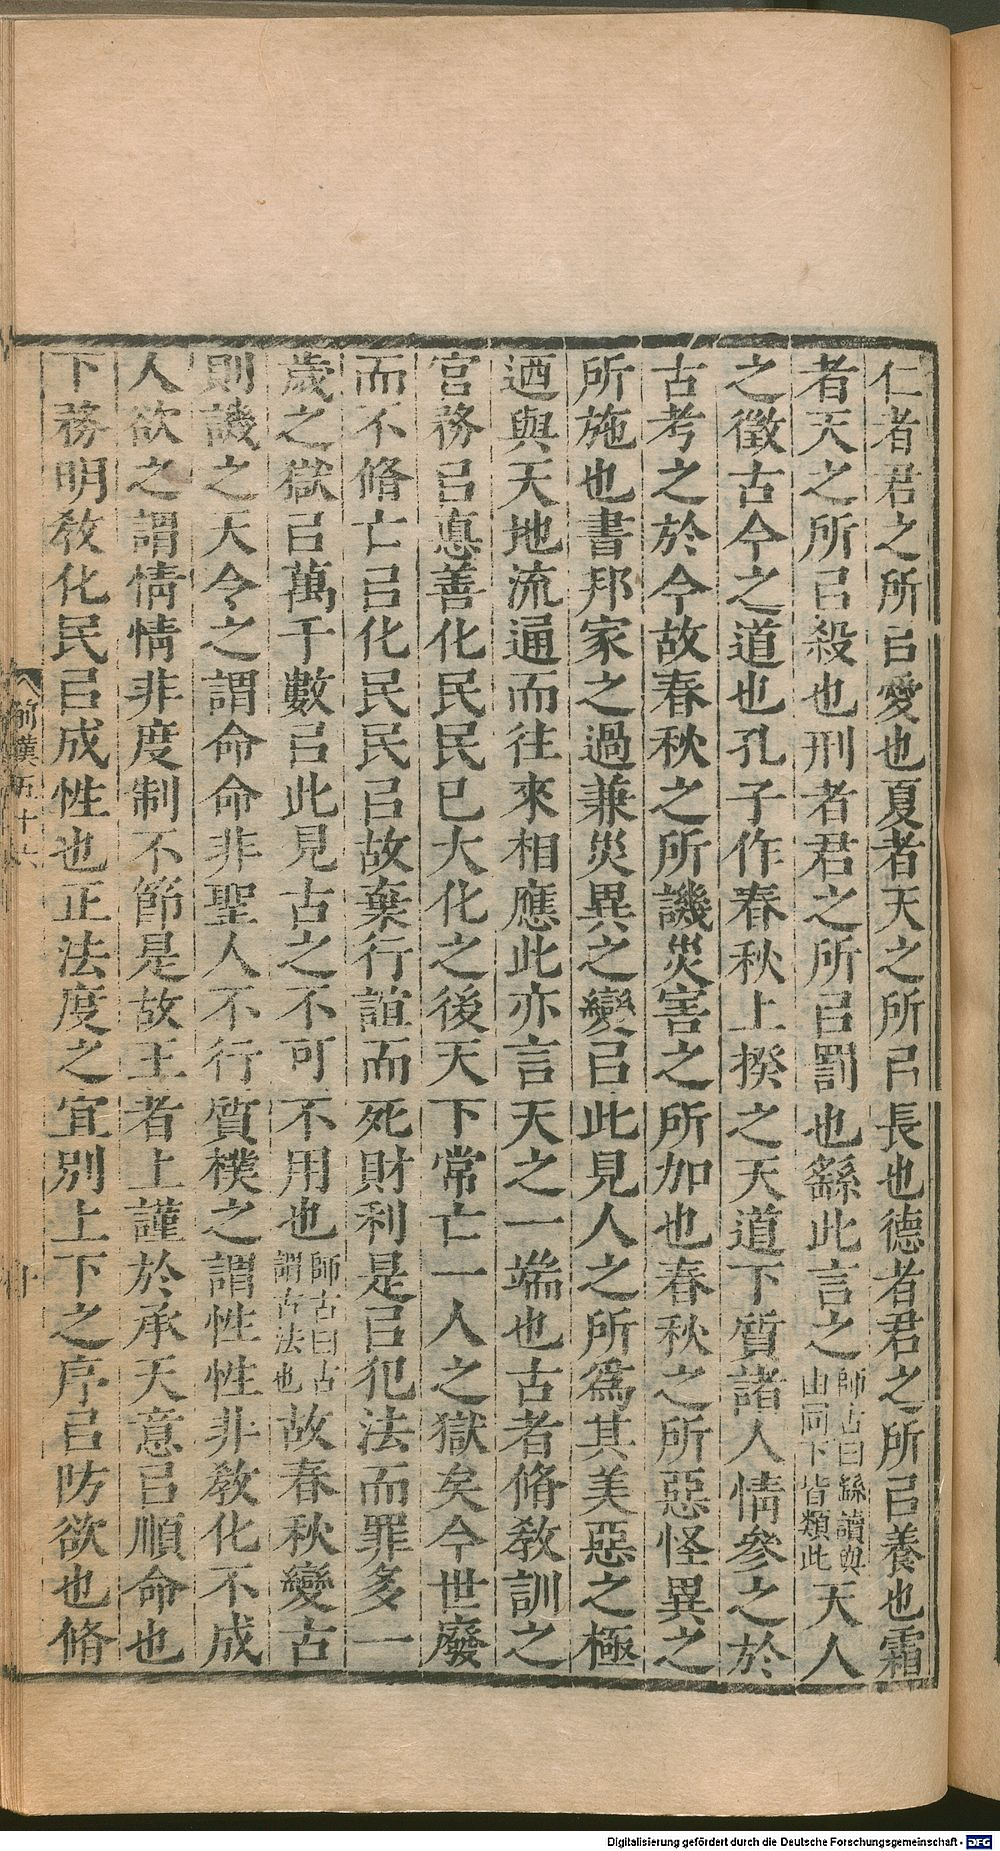 仁者君之所㠯愛也夏者天之所㠯長也德者君之所㠯養也霜
者天之所㠯殺也刑者君之所㠯罰也繇此言之師古曰繇讀與由同下皆類此天人
之徵古今之道也孔子作春秋上揆之天道下質諸人情參之於
古考之於今故春秋之所譏災害之所加也春秋之所惡怪異之
所施也書邦家之過兼災異之變㠯此見人之所爲其美惡之極
迺與天地流通而往來相應此亦言天之一端也古者脩敎訓之
官務㠯悳善化民民已大化之後天下常亡一人之獄矣今世廢
而不脩亡㠯化民民㠯故棄行誼而死財利是㠯犯法而罪多一
歲之獄㠯萬千數㠯此見古之不可不用也師古曰古謂古法也故春秋變古
則譏之天令之謂命命非聖人不行質樸之謂性性非敎化不成
人欲之謂情情非度制不節是故王者上謹於承天意㠯順命也
下務明敎化民㠯成性也正法度之宜別上下之序㠯防欲也脩
前漢五十六
十
Digitalisierung gefördert durch die Deutsche Forschungsgemeinschaft - DFG